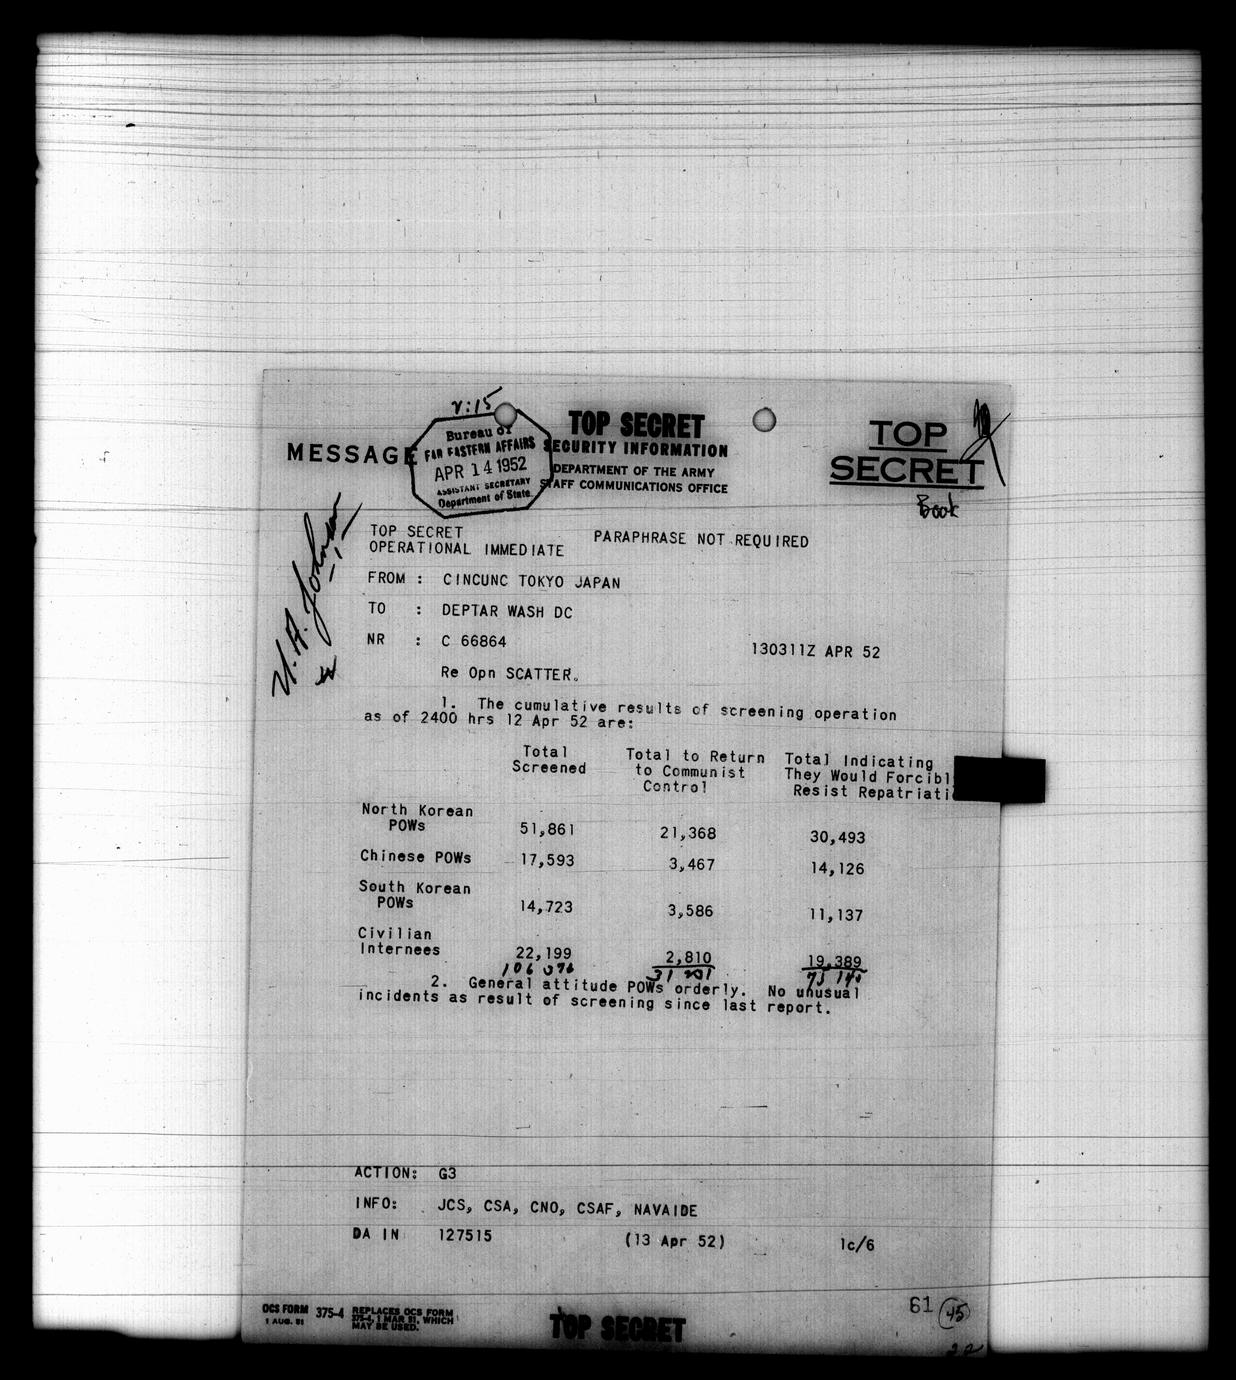 2:15
TOP SECRET
SECURITY INFORMATION
DEPARTMENT OF THE ARMY
STAFF COMMUNICATIONS OFFICE
MESSAGE
Bureau of
FAR EASTERN AFFAIRS
APR 14 1952
ASSISTANT SECRETARY
Department of State
TOP
SECRET
Book
U. A. Johnson
TOP SECRET PARAPHRASE NOT REQUIRED
OPERATIONAL IMMEDIATE
FROM : CINCUNC TOKYO JAPAN
TO : DEPTAR WASH DC
NR : C 66864 130311Z APR 52
Re Opn SCATTER.
1. The cumulative results of screening operation
as of 2400 hrs 12 Apr 52 are:
Total Total to Return Total Indicating
Screened to Communist They Would Forcibl
Control Resist Repatriati
North Korean
POWs 51,861 21,368 30,493
Chinese POWs 17,593 3,467 14,126
South Korean
POWs 14,723 3,586 11,137
Civilian
Internees 22,199 2,810 19,389
2. General attitude POWs orderly. No unusual
incidents as result of screening since last report.
ACTION: G3
INFO: JCS, CSA, CNO, CSAF, NAVAIDE
DA IN 127515 (13 Apr 52) 1c/6
OCS FORM 375-4 REPLACES OCS FORM
1 AUG. 51 375-4, 1 MAR 51, WHICH
MAY BE USED.
TOP SECRET
61 45